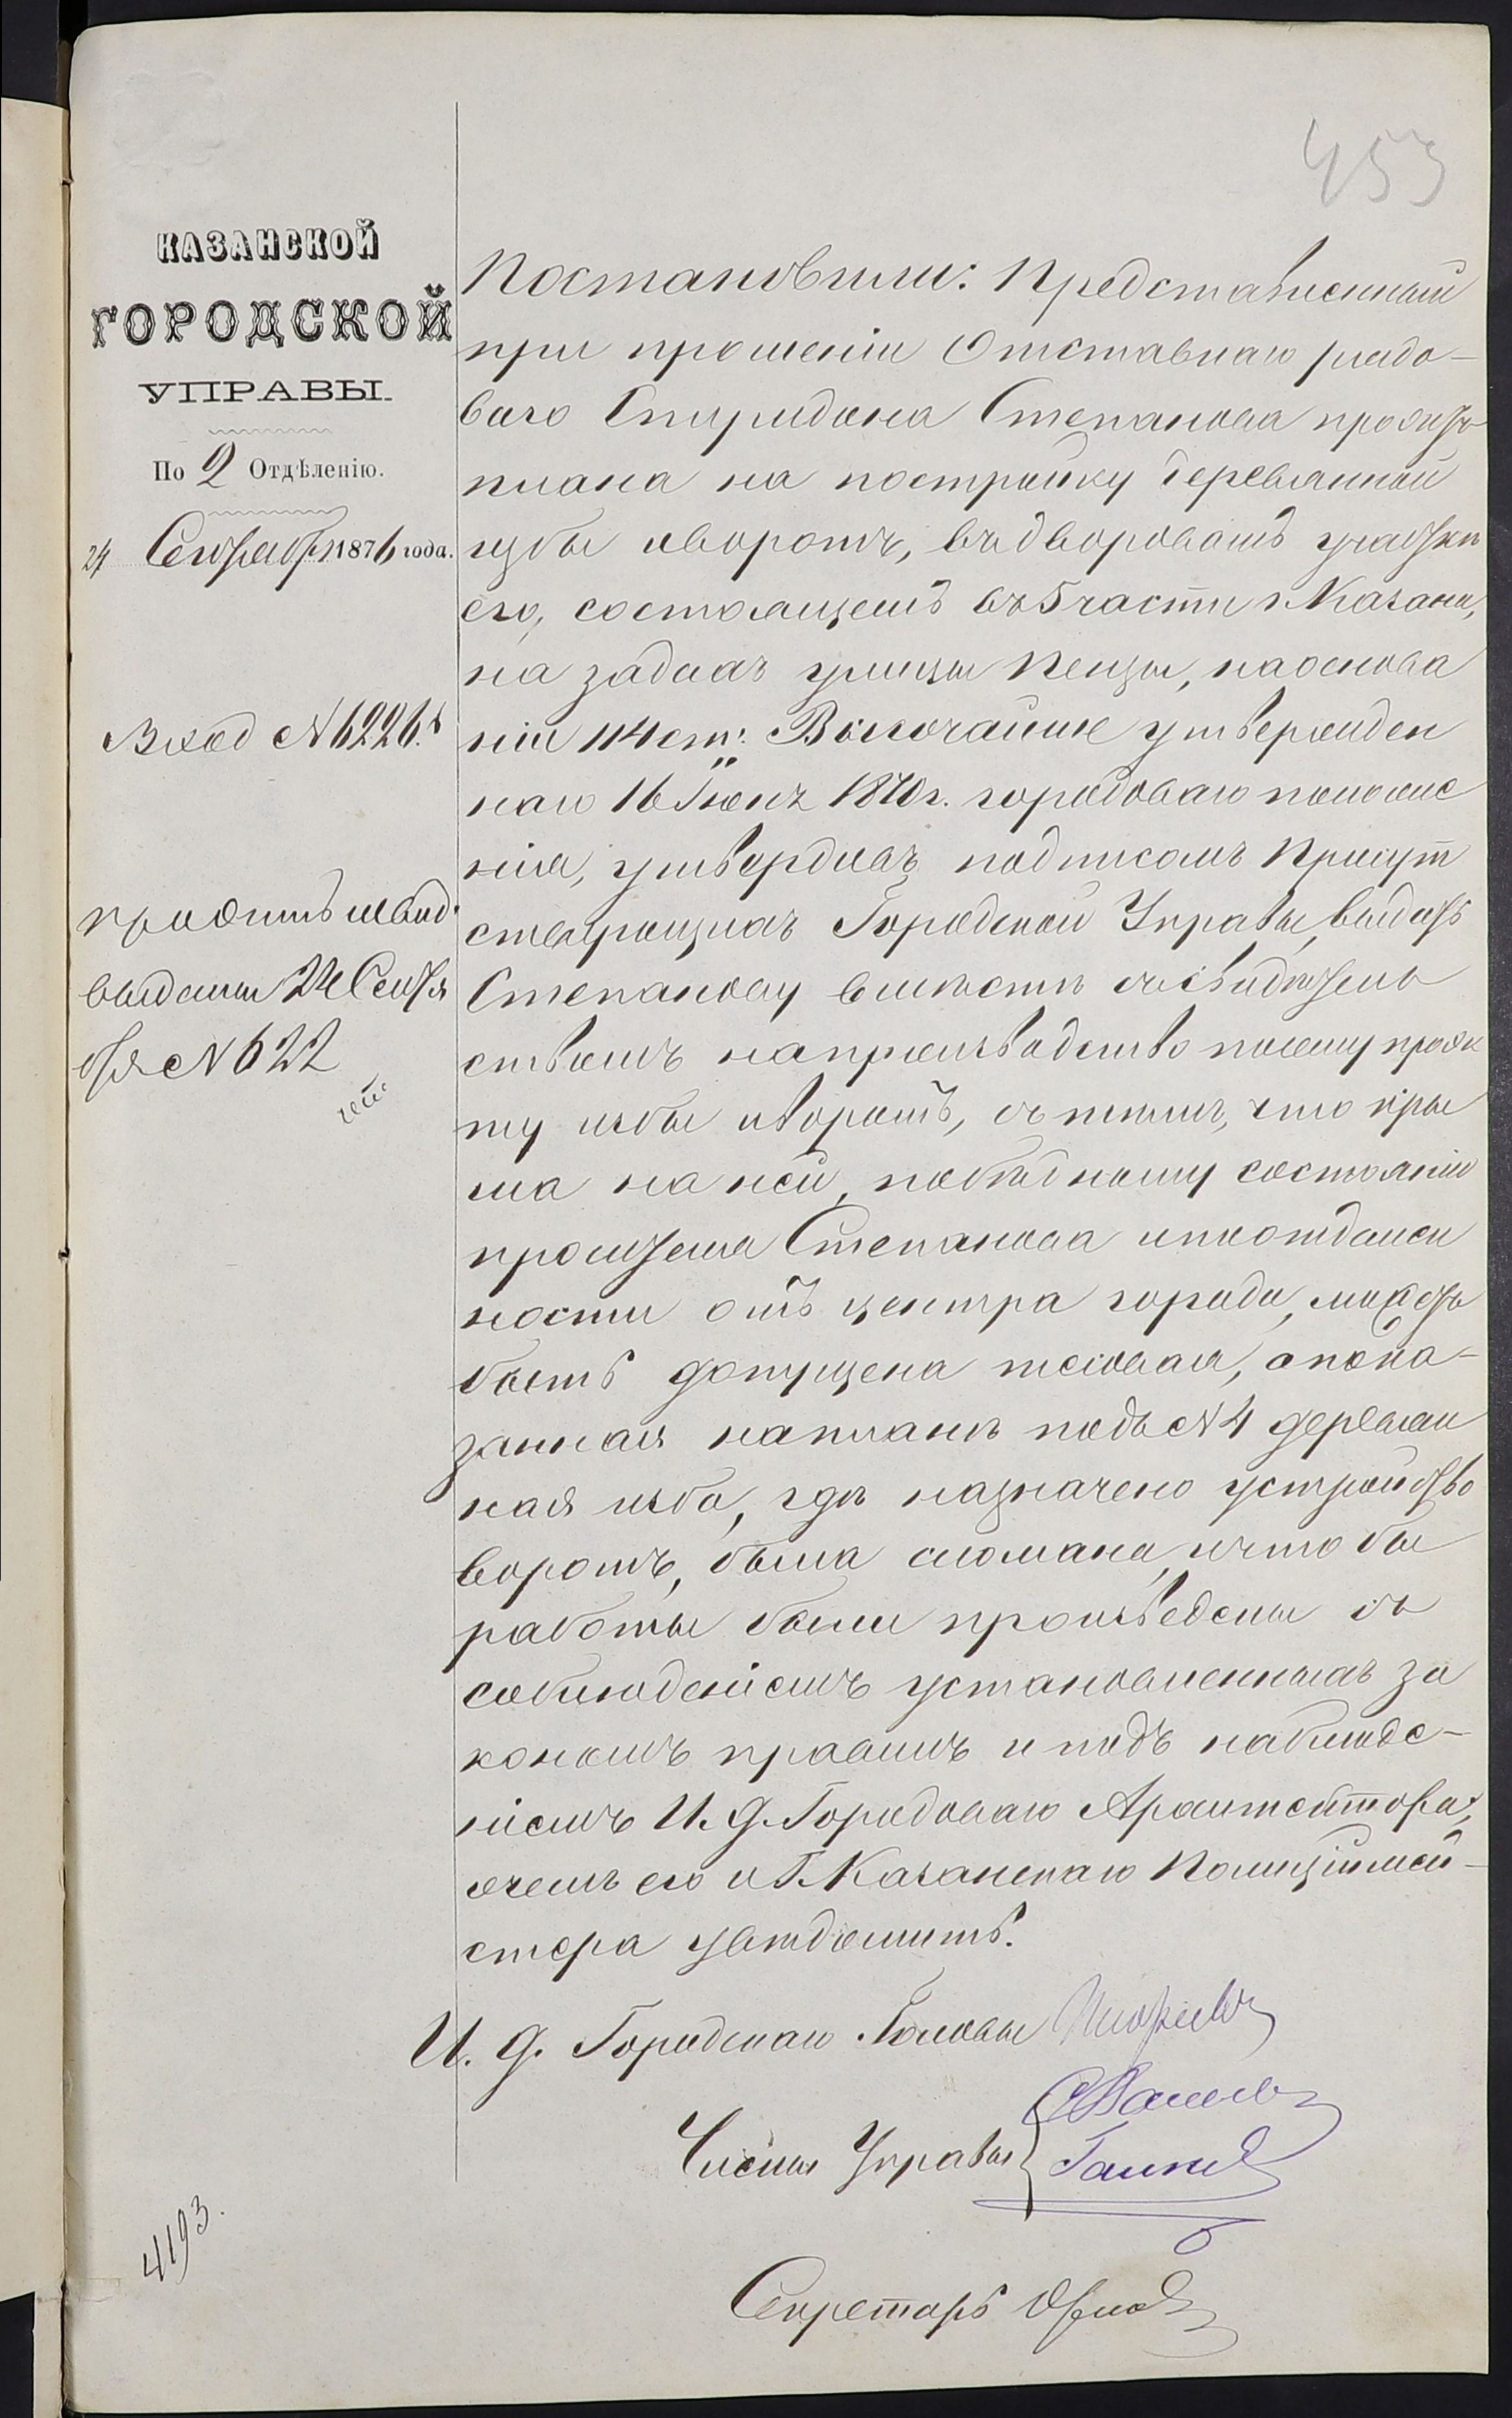 453
КАЗАНСКОЙ
ГОРОДСКОЙ
УПРАВЫ.
По 2 Отдѣленію.
24 Сентября 1876 года.
Вход № 6226.
проэктъ и свид.
выданы 24 Сентя
бря № 622
4193.
Постановили: Представленный
при прошеніи Отставнаго рядо-
ваго Спиридона Степанова проэктъ
плана на постройку деревянной
избы и воротъ, въ дворовомъ участкѣ
его, состоящемъ въ 5 части г. Казани,
на задахъ улицы Пензы, на основа
ніи 114 ст. Высочайше утвержден
наго 16 Іюня 1870 г. городоваго положе
нія, утвердивъ подписомъ Присут
ствующихъ Городской Управы, выдать
Степанову вмѣстѣ съ свидѣтель
ствомъ на производство по сему проэк
ту избы и воротъ, съ тѣмъ, что кры
ша на ней, по бѣдному состоянію
просителя Степанова и по отдален
ности отъ центра города, можетъ
быть допущена тесовая, а пока-
занная на планѣ подъ № 4 деревян
ная изба, гдѣ назначено устройство
воротъ, была сломана, и что бы
работы были произведены съ
соблюденіемъ установленныхъ за
кономъ правилъ и подъ наблюде-
ніемъ И. д. Городоваго Архитектора,
о чемъ его и Г. Казанскаго Полиціймей-
стера увѣдомить.
И. д. Городскаго Головы
Члены Управы
Секретарь